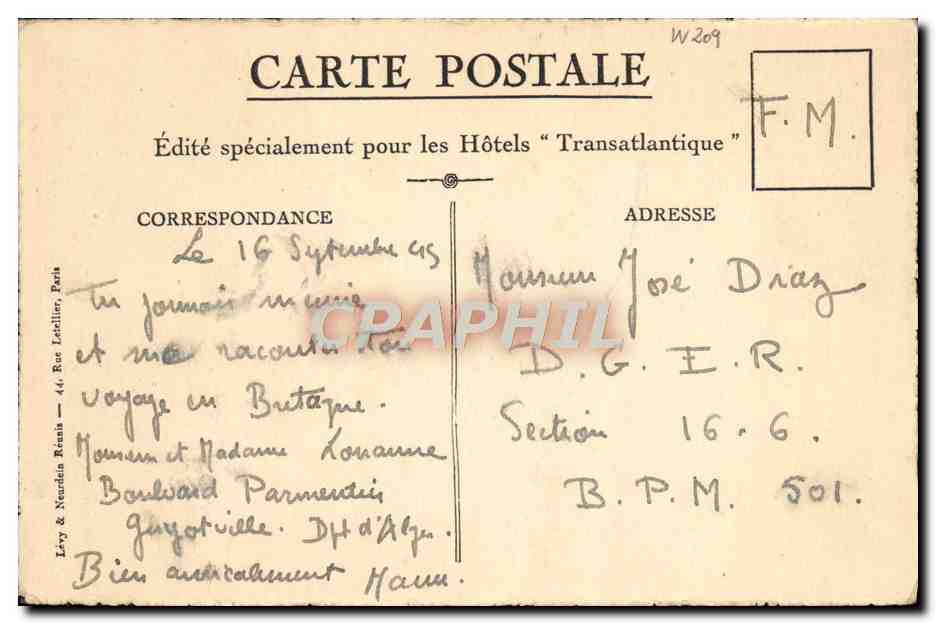 W209
CARTE POSTALE
F. M.
Édité spécialement pour les Hôtels "Transatlantique"
CORRESPONDANCE
Le 16 Septembre 45
Tu
et me raconter Ton
voyage en Bretagne.
Monsieur et Madame
Boulevard Parmentier
Guyotville. Dpt d'Alger.
Bien amicalement
ADRESSE
Monsieur José Diaz
D. G. E. R.
Section 16-6.
B. P. M. 501.
Lévy & Neurdein Réunis — 44, Rue Letellier, Paris
CPAPHIL